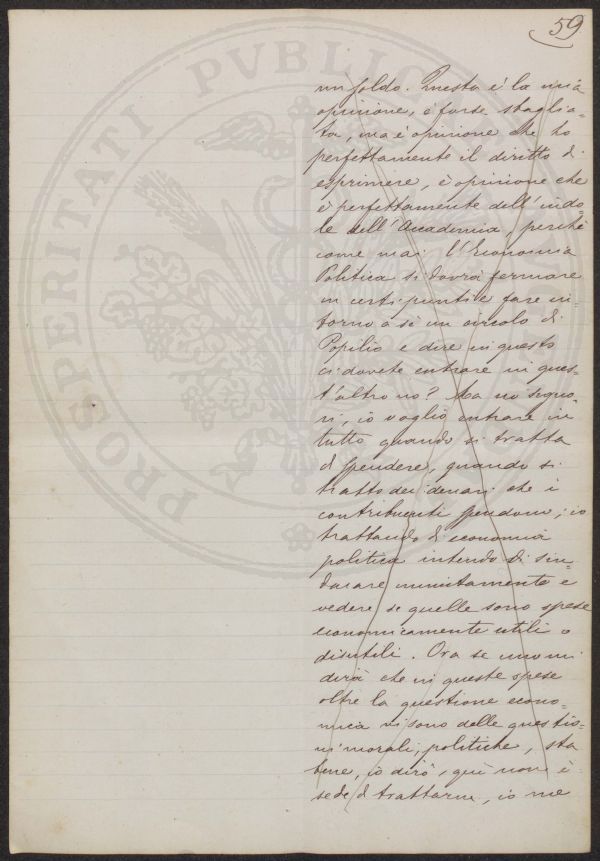 59
un soldo. Questa è la mia
opinione, è forse sbaglia=
ta, ma è opinione che ho
perfettamente il diritto di
esprimere, è opinione che
è perfettamente dell'indo=
le dell'Accademia, perché
come mai l'Economia
Politica si dovrà fermare
in certi punti e fare in=
torno a sè un circolo di
Popilio e dire in questo
ci dovete entrare in ques=
t'altro no? Ma no signo=
ri, io voglio entrare in
tutto quando si tratta
di spendere, quando si
tratta dei denari che i
contribuenti spendono; io
trattando di economia
politica intendo di sin=
dacare minutamente e
vedere se quelle sono spese
economicamente utili o
disutili. Ora se uno mi
dirà che in queste spese
oltre la questione econo=
mica vi sono delle questio=
ni morali, politiche, sta
bene, io dirò, qui non è
sede di trattarne, io me
PROSPERITATI PVBLICAE